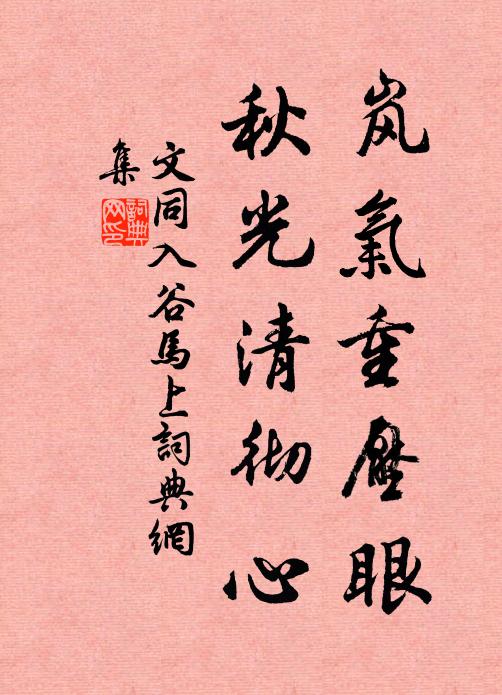 岚氣重壓眼
秋光清彻心
文同入谷馬上詞典網
集
詞典
网印